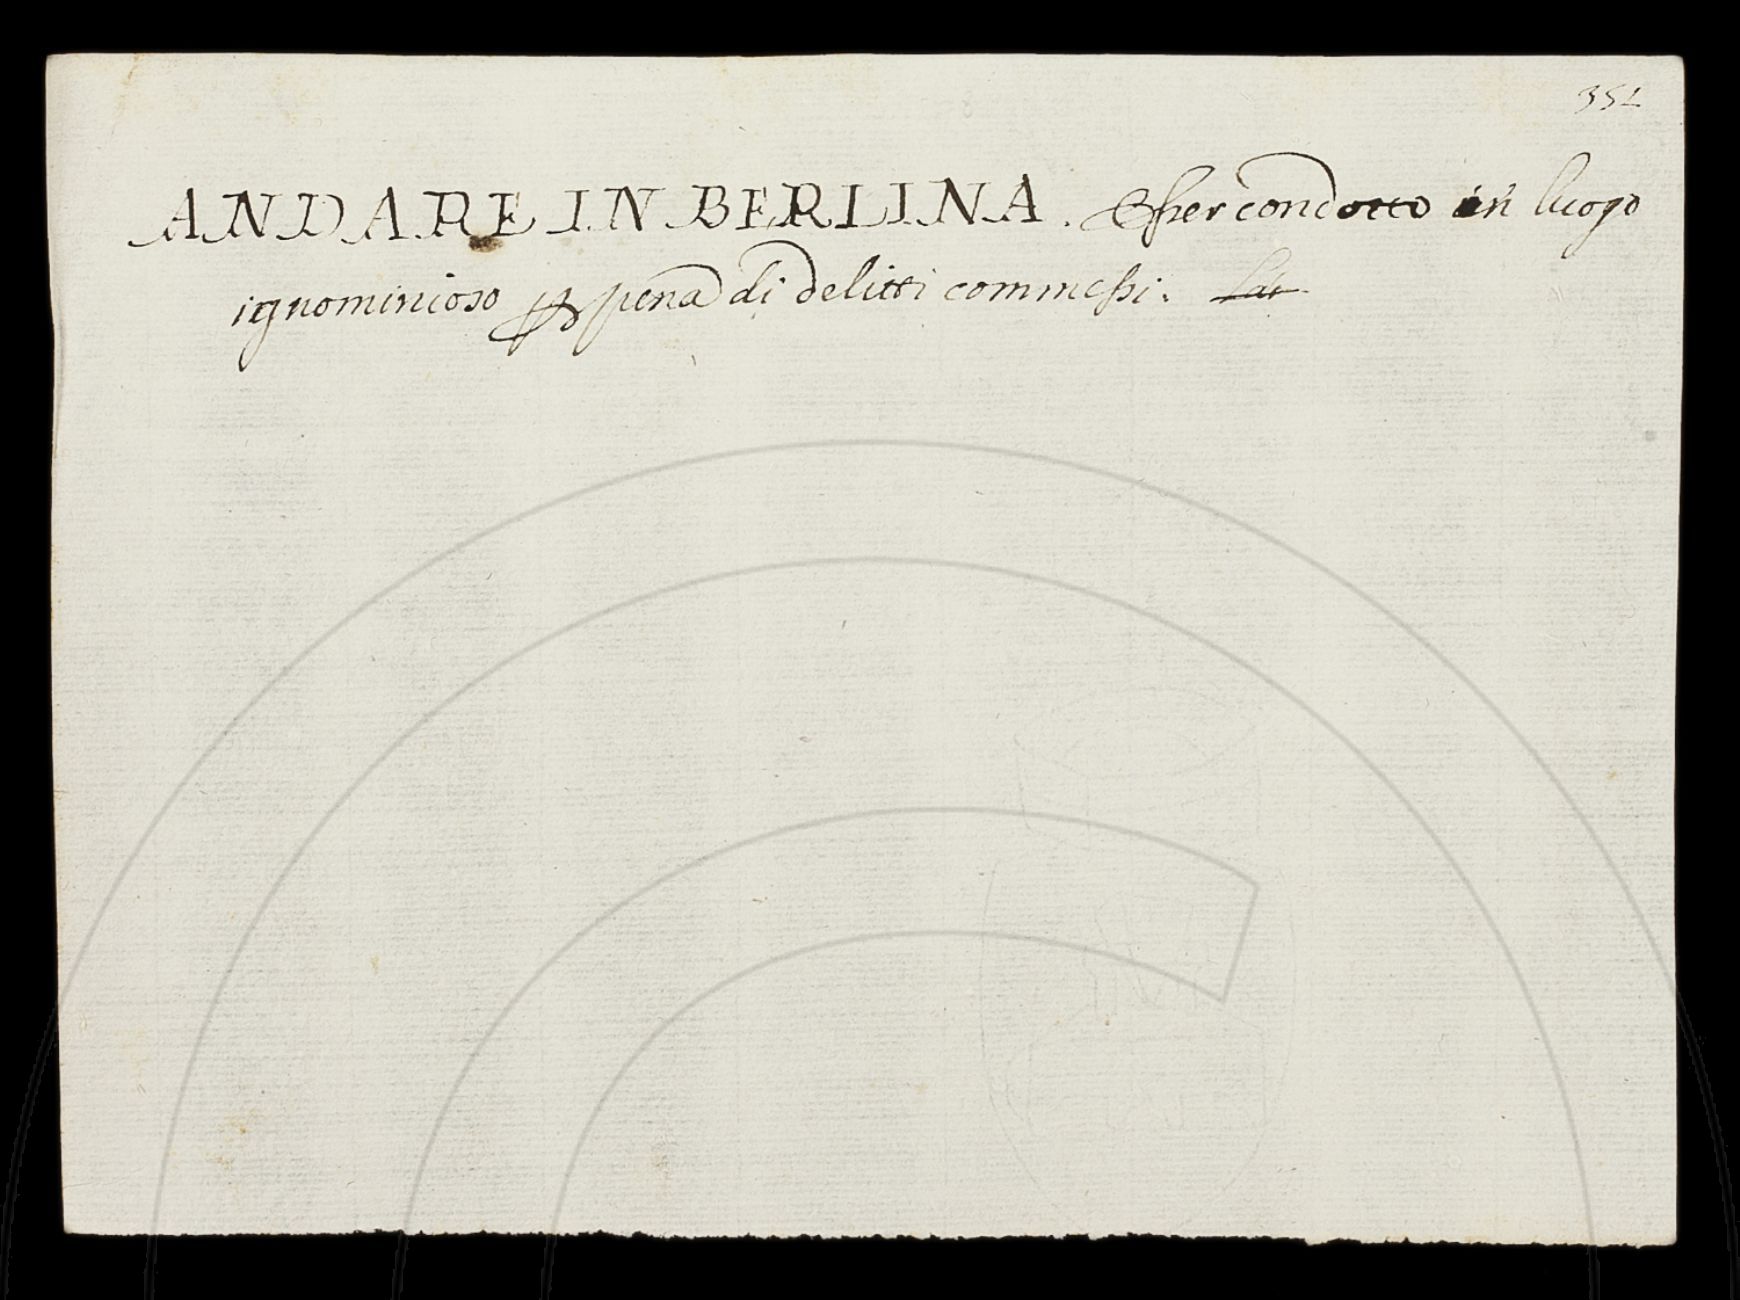 351
ANDARE IN BERLINA. Esser condotto in luogo
ignominioso ꝑ pena di delitti commessi. Lat